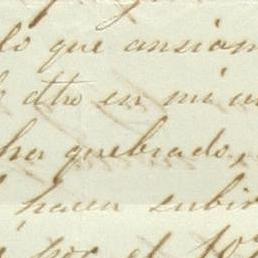 lo que ansiam
dho en mi
ha quebrado,
hacen subir
por el